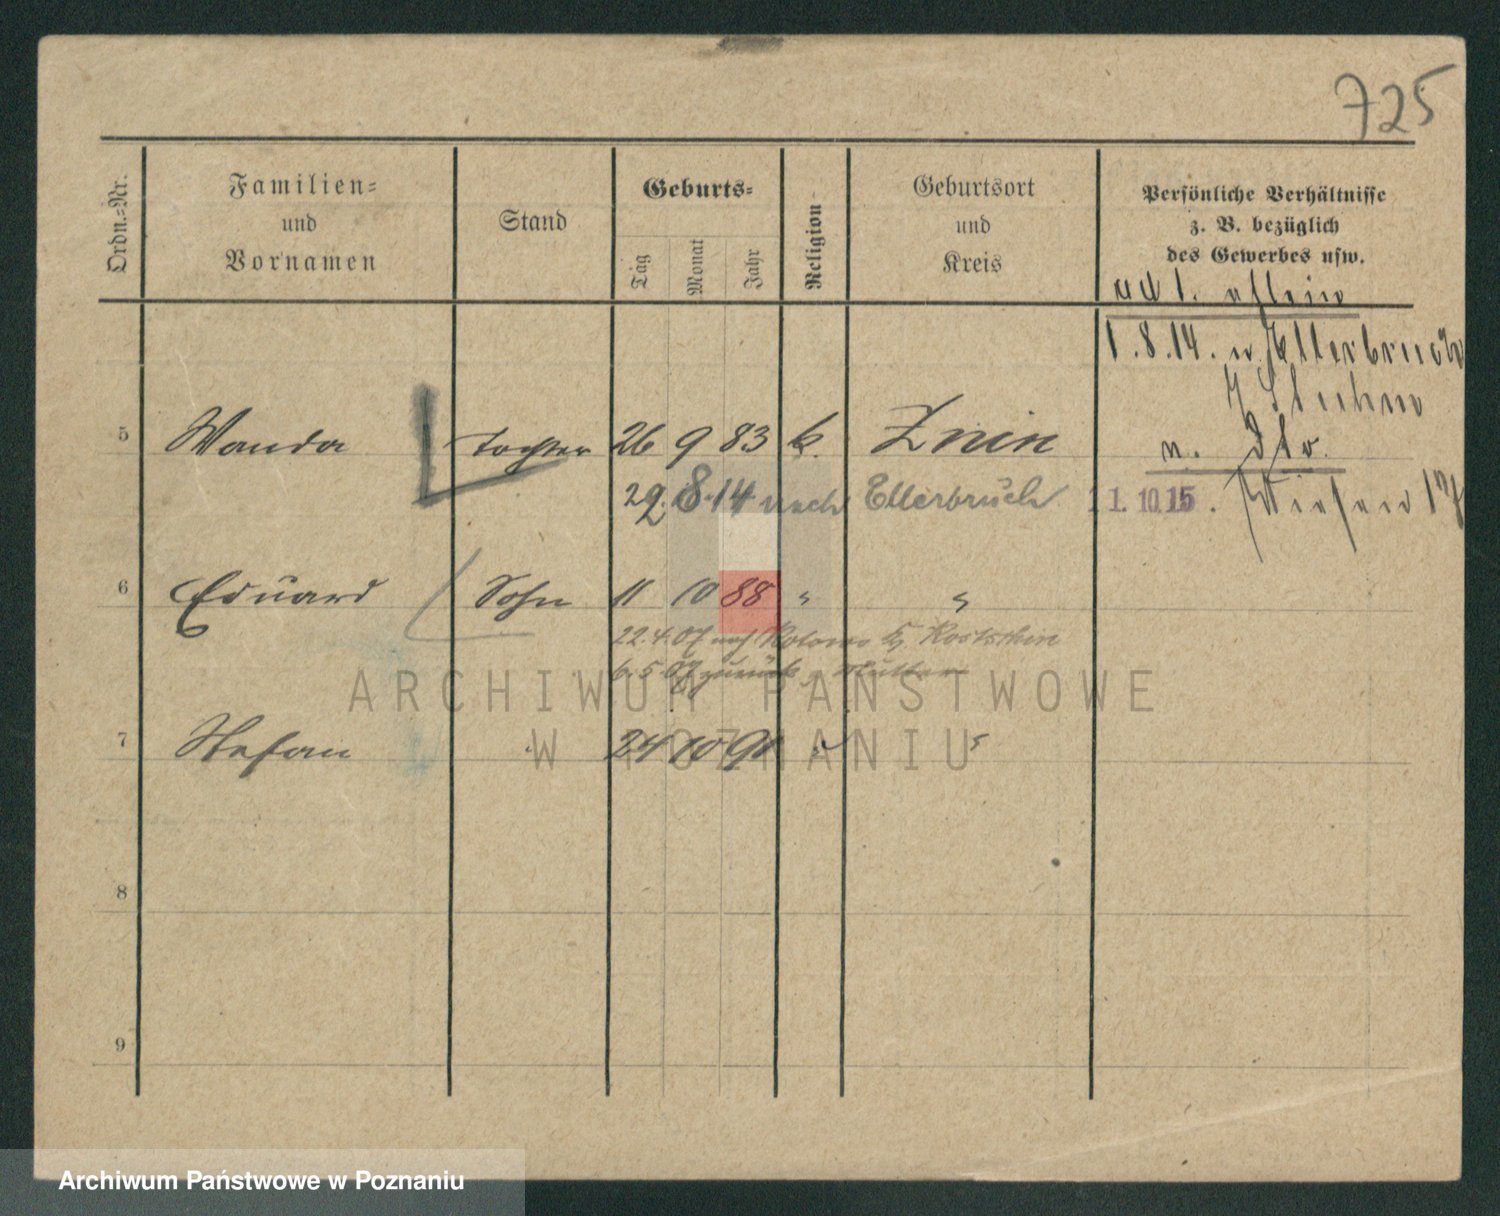 725
Ordn.=Nr.
Familien=
und
Vornamen
Stand
Geburts=
Tag
Monat
Jahr
Religion
Geburtsort
und
Kreis
Persönliche Verhältnisse
z. B. bezüglich
des Gewerbes usw.
ad 1. allein
1.8.14. n Ellerbruch
Kr Stuhm
5 Wanda Tochter 26 9 83 k. Znin
n. dto.
29.8.14 nach Ellerbruch
1.10.15. Wiesen
6 Eduard Sohn 11 10 88 "  "
22.4.07 nach
6.5.07 zurück z. Mutter
7 Stefan " 24 10 91 " "
8
9
ARCHIWUM PAŃSTWOWE
W POZNANIU
Archiwum Państwowe w Poznaniu